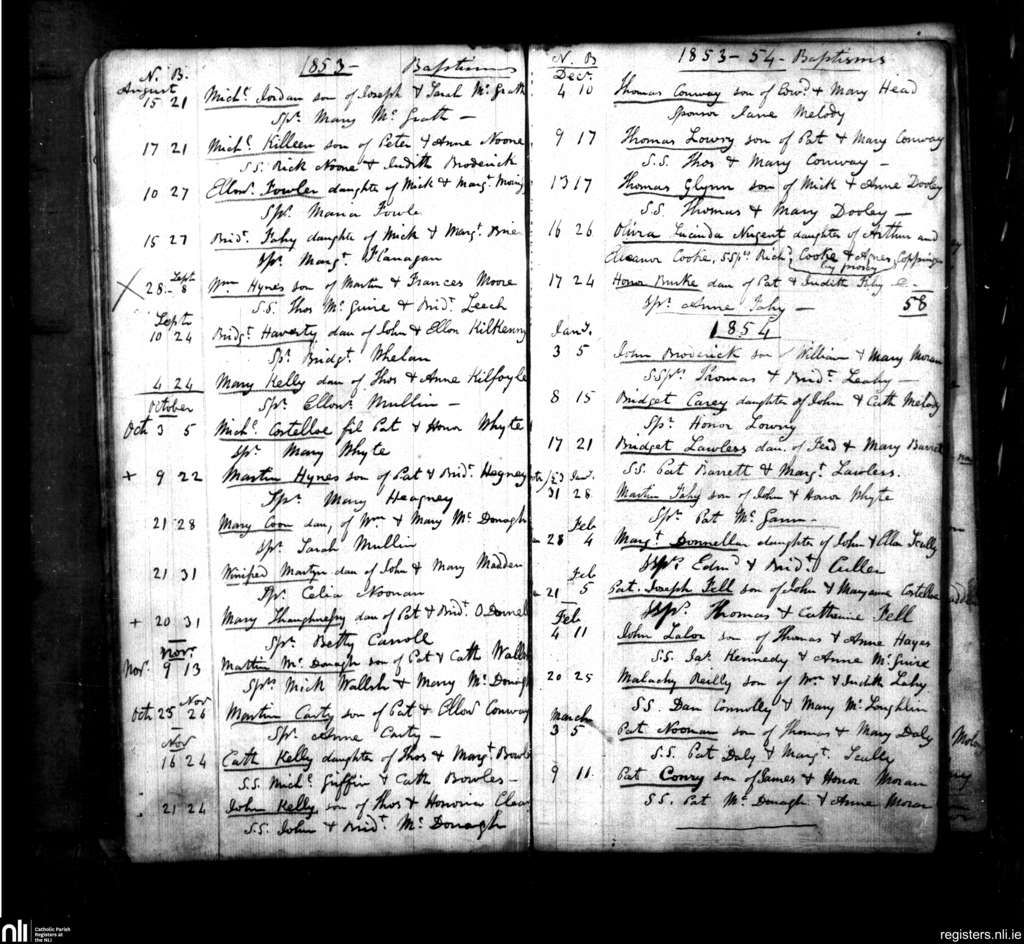 N. B. 1853 - Baptisms
August
15 21 Michl. Jordan son of Joseph & Sarah McGrath
Spr. Mary McGrath —
17 21 Michl. Killeen son of Peter & Anne Noone
S.S. Rick Noone & Judith Broderick
10 27 Ellonr. Fowler daughter of Mick & Margt.
Spr. Maria Fowle
15 27 Bridt. Fahy daughter of Mick & Margt.
Spr. Margt. Flanagan
28 - Sept 8 Wm. Hynes son of Martin & Frances Moore
S.S. Thos McGuire & Bridt. Leech
Sept
10 24 Bridgt. Haverty dau of John & Ellen Kilkenny
Sp. Bridgt. Whelan
4 24 Mary Kelly dau of Thos & Anne Kilfoyle
Spr. Ellonr. Mullin —
October
Oct 3 5 Michl. Costelloe fil Pat & Honor Whyte
Spr. Mary Whyte
+ 9 22 Martin Hynes son of Pat & Bridt. Hegney
Spr. Mary Heagney
21 28 Mary Coon dau, of Wm & Mary McDonagh
Spr. Sarah Mullin
21 31 Winifred Martyn dau of John & Mary Madden
Spr. Celia Noonan
+ 20 31 Mary dau of Pat & Bridt. O Donnel
Spr. Betty Carroll
Novr.
Novr. 9 13 Martin McDonagh son of Pat & Cath Walsh
Sprs Mick Wallsh & Mary McDonagh
Oct 25 Nov 26 Martin Carty son of Pat & Ellonr Conway
Spr. Anne Carty —
Nov
16 24 Cath Kelly daughter of Thos & Margt. Bowles
S.S. Michl. Griffin & Cath Bowles —
21 24 John Kelly son of Thos & Honoria
S.S. John & Bridt. McDonagh
N. B 1853 - 54 - Baptisms
Decr.
4 10 Thomas Conway son of Edwd. & Mary Head
Sponsor Jane Melody
9 17 Thomas Lowry son of Pat & Mary Conway
S.S. Thos & Mary Conway —
13 17 Thomas Glynn son of Mick & Anne Dooley
S.S. Thomas & Mary Dooley —
16 26 Olivia Lucinda Nugent daughter of Arthur and
Eleanor Cooke, S.Sprs. Richd. Cooke & Agnes Coppinger
by proxy
17 24 Honor Burke dau of Pat & Judith Fahy
Spr. Anne Fahy — 58
1854
Jany.
3 5 John Broderick son William & Mary Moran
S.Sprs. Thomas & Bridt. Leahy —
8 15 Bridget Carey daughter of John & Cath Melody
Spr. Honor Lowry
17 21 Bridget Lawless dau. of Ferd & Mary Barret
S.S. Pat Barrett & Margt. Lawless.
Jan.
31 28 Martin Fahy son of John & Honor Whyte
Spr. Pat McGann —
Feb
28 4 Margt. Donnellan daughter of John & Ellen Scully
Sprs. Edmd. & Bridt. Cullen
Feb
21 5 Pat. Joseph Fell son of John & Maryanne Costelloe
Sprs. Thomas & Catherine Fell
Feb
4 11 John Lalor son of Thomas & Anne Hayes
S.S. Jas. Kennedy & Anne McGuire
20 25 Malachy Reilly son of Wm & Judith Lahy
S.S. Dan Connolley & Mary McLoughlin
March
3 5 Pat Noonan son of Thomas & Mary Daly
S.S. Pat Daly & Margt. Scully
9 11 Pat Conry son of James & Honor Moran
S.S. Pat McDonagh & Anne Moran
nli
Catholic Parish
Registers at
the NLI
registers.nli.ie